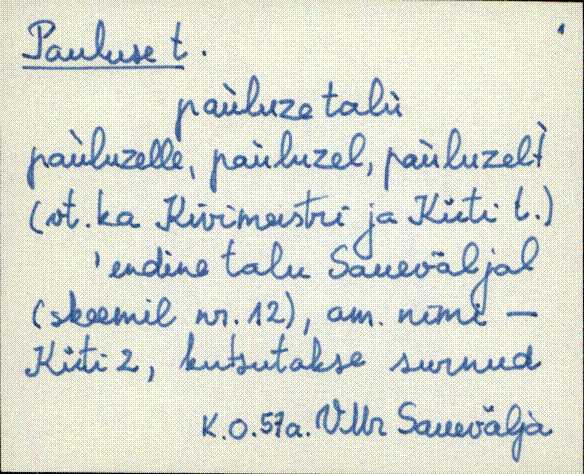 Pauluse t.
paùluze talù
paùluzelle, paùluzel, paùluzelt̀
(vt. ka Kivimeistri ja Küti t.)
'endine talu Sauevälja̬l
(skeemil nr. 12), am. nimi —
Küti 2, kutsutakse surnud
K.O. 57a. VMr Sauevälja